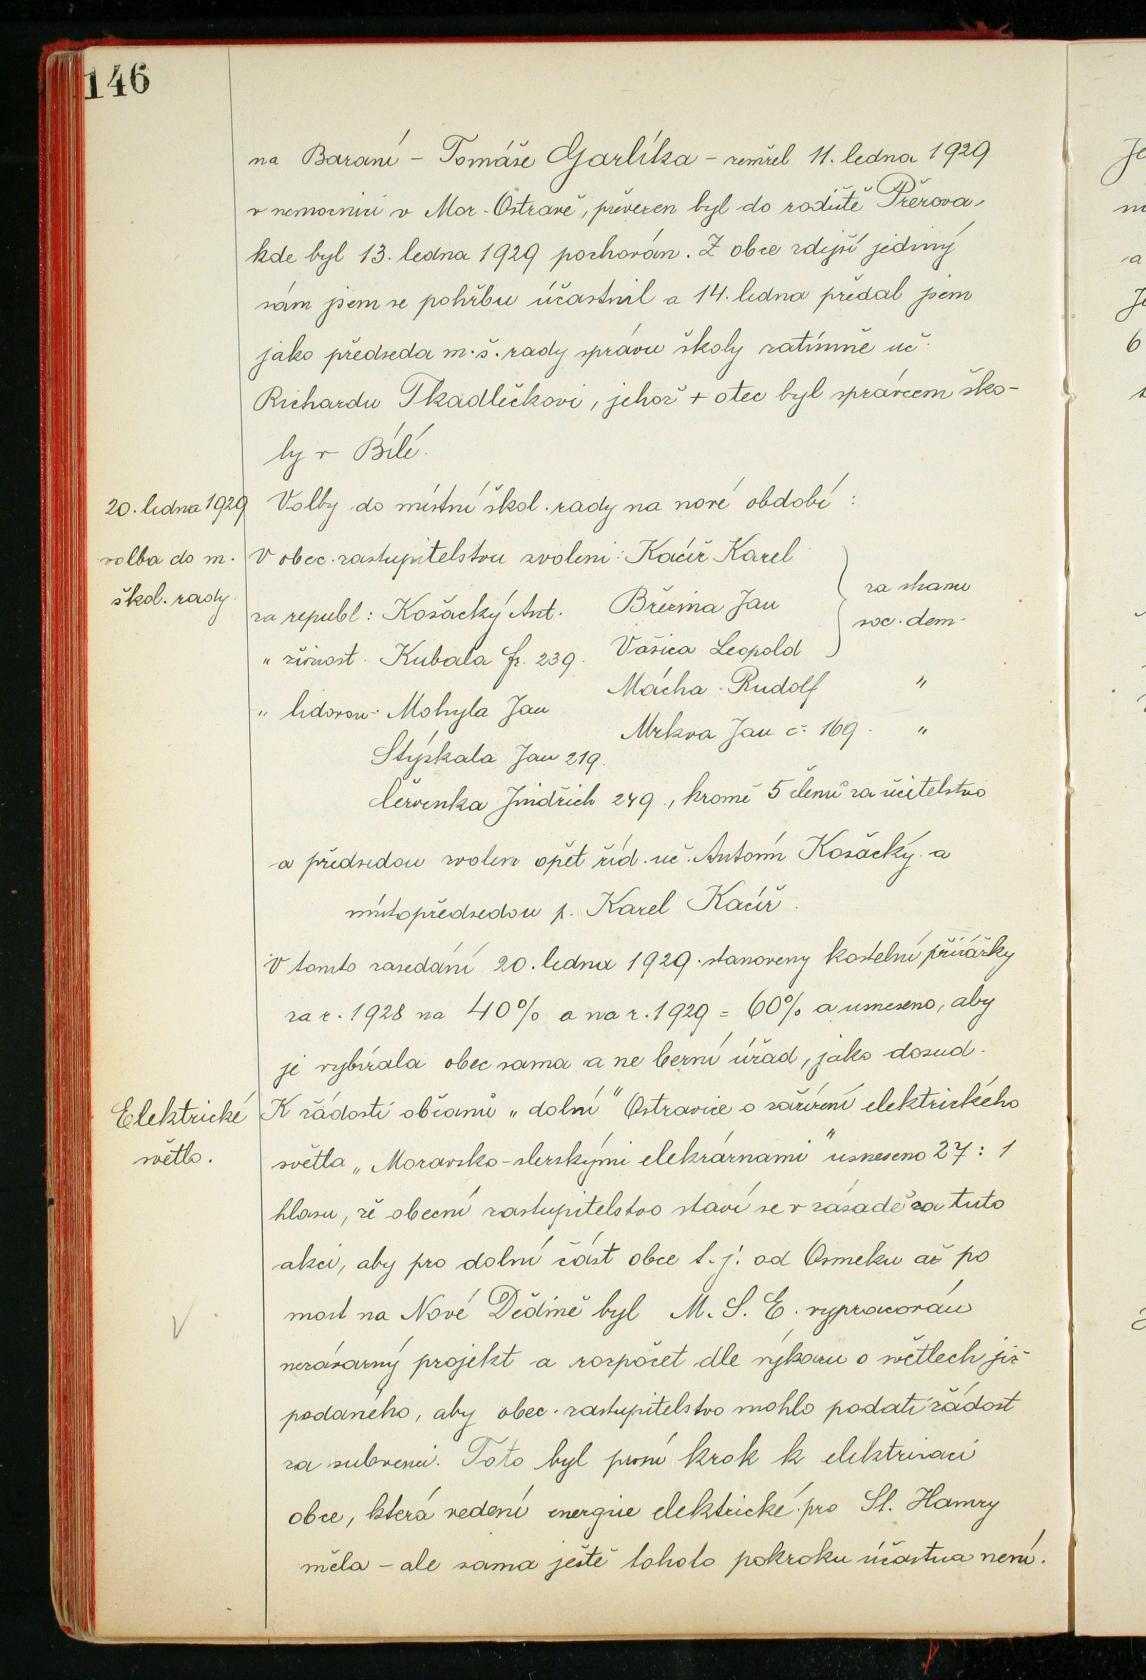 146
na Baraní – Tomáše Garlíka – zemřel 11. ledna 1929
v nemocnici v Mor. Ostravě, převezen byl do rodiště Přerova,
kde byl 13. ledna 1929 pochován. Z obce zdejší jediný
sám jsem se pohřbu účastnil a 14. ledna předal jsem
jako předseda m. š. rady správu školy zatímně uč.
Richardu Tkadlečkovi, jehož + otec byl správcem ško-
ly v Bílé.
20. ledna 1929
volba do m.
škol. rady.
Volby do místní škol. rady na nové období :
V obec. zastupitelstvu zvoleni: Kacíř Karel
za republ: Košacký Ant. Březina Jan
za stranu
soc. dem.
„ živnost. Kubala fr. 239. Vašica Leopold
„ lidovou. Mohyla Jan Mácha Rudolf "
Stýskala Jan 219. Mrkva Jan č. 169. "
Červenka Jindřich 249., kromě 5 členů za učitelstvo
a předsedou zvolen opět říd. uč. Antonín Košacký a
místopředsedou p. Karel Kacíř.
V tomto zasedání 20. ledna 1929 stanoveny kostelní přirážky
za r. 1928 na 40% a na r. 1929 = 60% a usneseno, aby
je vybírala obec sama a ne berní úřad, jako dosud.
Elektrické
světlo.
K žádosti občanů „dolní" Ostravice o zařízení elektrického
světla „Moravsko-slezskými elekrárnami" usneseno 27 : 1
hlasu, že obecní zastupitelstvo staví se v zásadě za tuto
akci, aby pro dolní část obce t. j. od Osmeku až po
most na Nové Dědině byl M. S. E. vypracován
nezávazný projekt a rozpočet dle výkazu o světlech již
podaného, aby obec. zastupitelstvo mohlo podati žádost
za subvenci. Toto byl první krok k elektrisaci
obce, která vedení energie elektrické pro St. Hamry
měla – ale sama ještě tohoto pokroku účastna není.